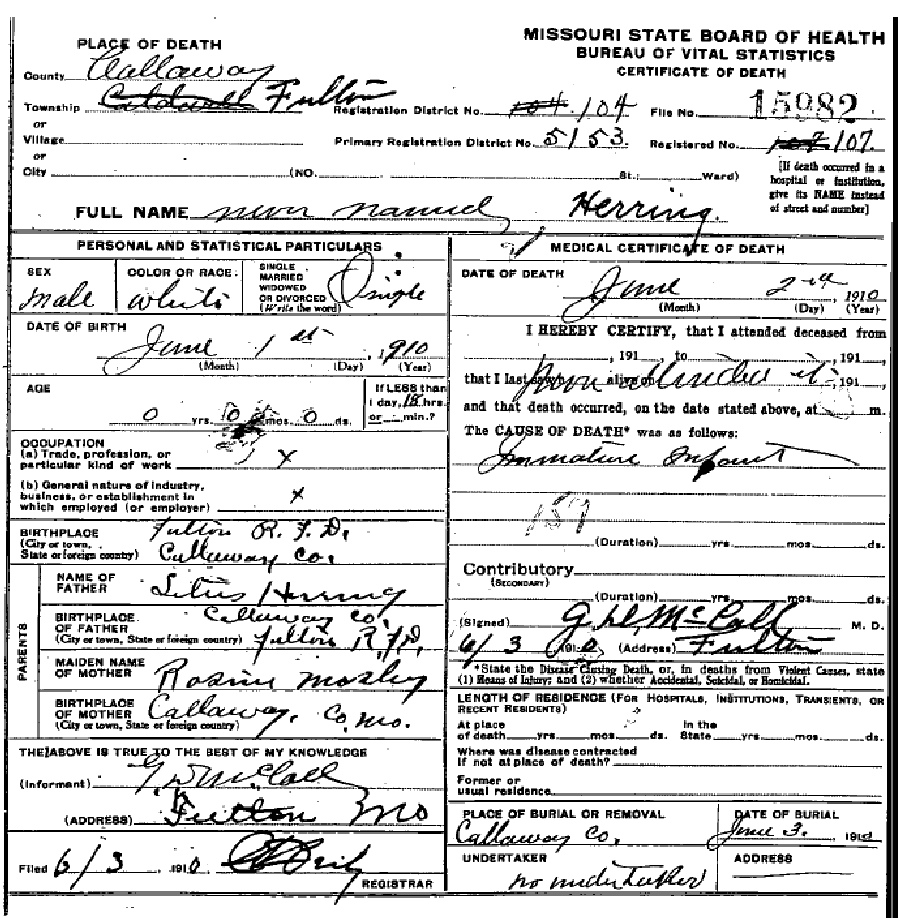 MISSOURI STATE BOARD OF HEALTH
BUREAU OF VITAL STATISTICS
CERTIFICATE OF DEATH
PLACE OF DEATH
County Callaway
Township Caldwell Fulton
or
Village
or
City (NO. St.; Ward)
Registration District No. 104 104 File No. 15982
Primary Registration District No. 5153 Registered No. 107 107.
[If death occurred in a
hospital or institution,
give its NAME instead
of street and number]
FULL NAME never named Herring.
PERSONAL AND STATISTICAL PARTICULARS
SEX
male
COLOR OR RACE:
White
SINGLE
MARRIED
WIDOWED
OR DIVORCED
(Write the word)
Single
DATE OF BIRTH
June 1st, 1910
(Month) (Day) (Year)
AGE
0 yrs. 0 mos. 0 ds.
If LESS than
1 day, 18 hrs.
or min.?
OCCUPATION
(a) Trade, profession, or
particular kind of work x
(b) General nature of industry,
business, or establishment in
which employed (or employer) x
BIRTHPLACE
(City or town,
State or foreign country)
Fulton R.F.D.
Callaway Co.
PARENTS
NAME OF
FATHER
Herring
BIRTHPLACE
OF FATHER
(City or town, State or foreign country)
Callaway Co.
Fulton R.F.D.
MAIDEN NAME
OF MOTHER
Mosley
BIRTHPLACE
OF MOTHER
(City or town, State or foreign country)
Callaway, Co. Mo.
THE ABOVE IS TRUE TO THE BEST OF MY KNOWLEDGE
(Informant) McCall
(ADDRESS) Fulton Mo
Filed 6/3 1910
REGISTRAR
MEDICAL CERTIFICATE OF DEATH
DATE OF DEATH
June 2nd 1910
(Month) (Day) (Year)
I HEREBY CERTIFY, that I attended deceased from
, 191 , to , 191 ,
that I last saw h alive on 191 ,
and that death occurred, on the date stated above, at m.
The CAUSE OF DEATH* was as follows:
Immature Infant
(Duration) yrs. mos. ds.
Contributory
(SECONDARY)
(Duration) yrs. mos. ds.
(Signed) McCall M. D.
6/3 1910 (Address) Fulton
*State the Disease Causing Death, or, in deaths from Violent Causes, state
(1) Means of Injury; and (2) whether Accidental, Suicidal, or Homicidal.
LENGTH OF RESIDENCE (FOR HOSPITALS, INSTITUTIONS, TRANSIENTS, OR
RECENT RESIDENTS)
At place In the
of death yrs. mos. ds. State yrs. mos. ds.
Where was disease contracted
if not at place of death?
Former or
usual residence
PLACE OF BURIAL OR REMOVAL
Callaway Co.
DATE OF BURIAL
June 3. 1910
UNDERTAKER
no undertaker
ADDRESS